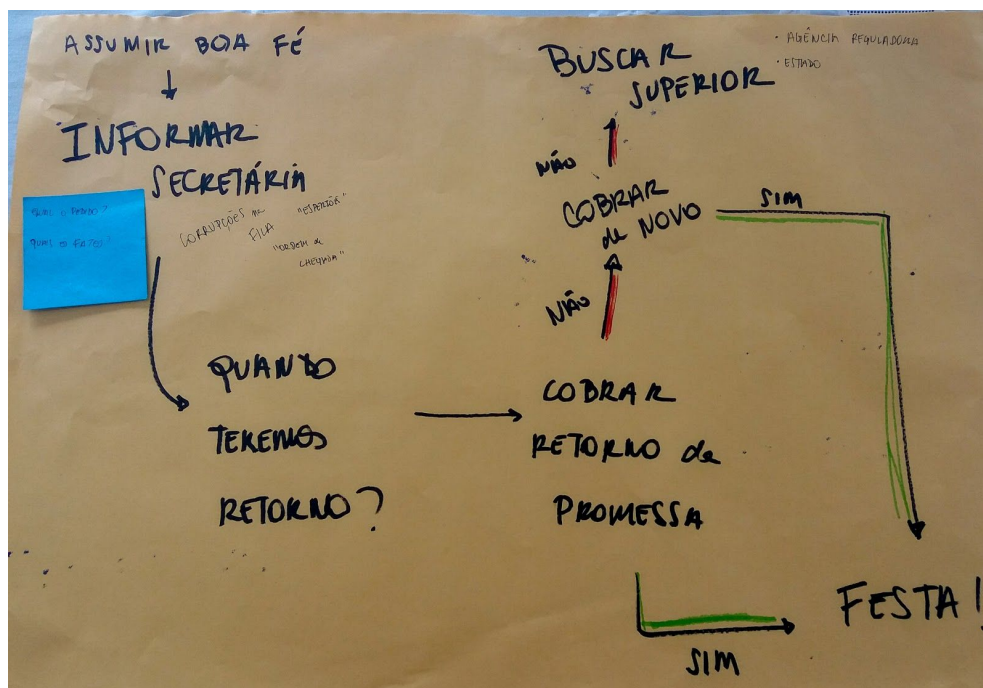 ASSUMIR BOA FÉ
INFORMAR
SECRETÁRIA
QUAL O PEDIDO?
QUAIS O
CORRUPÇÕES na
FILA
"ESPERTÕES"
"ORDEM de
CHEGADA"
QUANDO
TEREMOS
RETORNO?
COBRAR
RETORNO de
PROMESSA
NÃO
COBRAR
de NOVO
NÃO
BUSCAR
SUPERIOR
· AGÊNCIA REGULADORA
· ESTADO
SIM
SIM
FESTA!